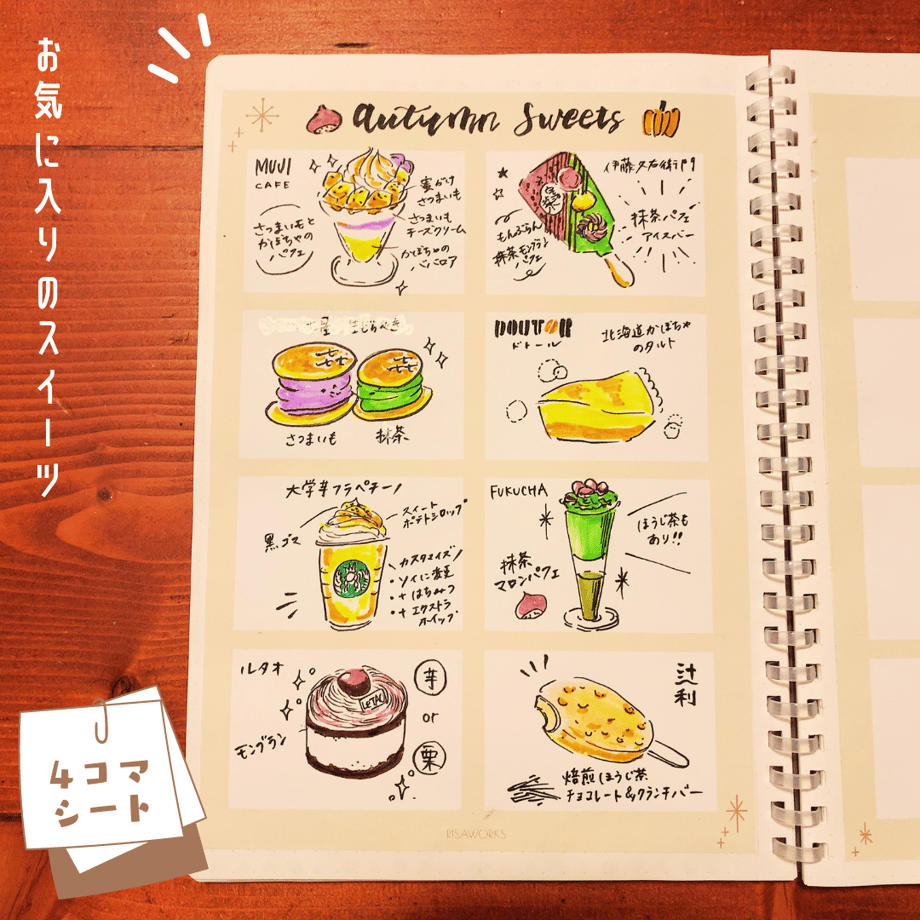 お気に入りのスイーツ
autumn sweets
MUJI
CAFE
さつまいもと
かぼちゃの
パフェ
蜜がけ
さつまいも
さつまいも
チーズクリーム
かぼちゃの
ババロア
伊藤久右衛門
抹茶パフェ
アイスバー
もんぶらん
抹茶モンブラン
パフェ
さつまいも
抹茶
DOUTOR
ドトール
北海道かぼちゃ
のタルト
大学芋フラペチーノ
黒ゴマ
スイート
ポテトシロップ
カスタマイズ
・ソイに変更
・+はちみつ
・+エクストラ
ホイップ
FUKUCHA
ほうじ茶も
あり!!
抹茶
マロンパフェ
ルタオ
LeTAO
モンブラン
芋
or
栗
辻利
焙煎ほうじ茶
チョコレート&クランチバー
RISAWORKS
4コマ
シート